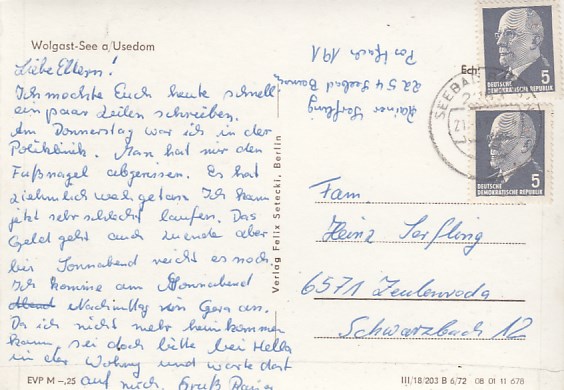 Wolgast-See a/Usedom
Liebe Eltern!
Ich möchte Euch heute schnell
ein paar Zeilen schreiben.
Am Donnerstag war ich in der
Poliklinik. Man hat mir den
Fußnagel abgerissen. Es hat
ziehmlich weh getan. Ich kann
jetzt sehr schlecht laufen. Das
Geld geht auch zuende aber
bis Sonnabend reicht es noch.
Ich komme am Sonnabend
Nachmittag von Gera an.
Da ich nicht mehr heimkommen
kann, sei doch bitte bei
in der Wohnung und warte dort
auf mich. Gruß Rainer
EVP M –,25
Verlag Felix Setecki, Berlin
Rainer
2254 Seebad
Postfach 191
SEEBAD
DEUTSCHE
DEMOKRATISCHE REPUBLIK
5
DEUTSCHE
DEMOKRATISCHE REPUBLIK
5
Fam.
Heinz
6571 Zeulenroda
Schwarzbach 12
III/18/203 B 6/72 08 01 11 678